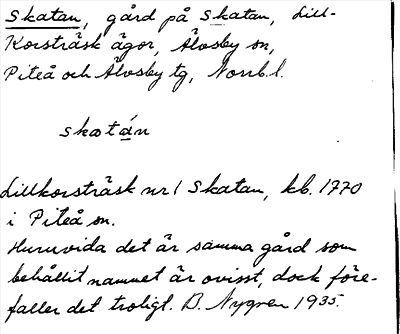 Skatan, gård på Skatan, Lill-
Korsträsk ägor, Älvsby sn,
Piteå och Älvsby tg, Norrb.l.
skatán
Lillkorsträsk nr 1 Skatan, kb. 1770
i Piteå sn.
Huruvida det är samma gård som
behållit namnet är ovisst, dock före-
faller det troligt. B. Nygren 1935.